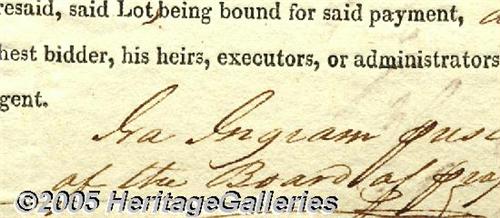 resaid, said Lot being bound for said payment,
hest bidder, his heirs, executors, or administrators
gent.
Ira Ingram
of the Board of
©2005 HeritageGalleries